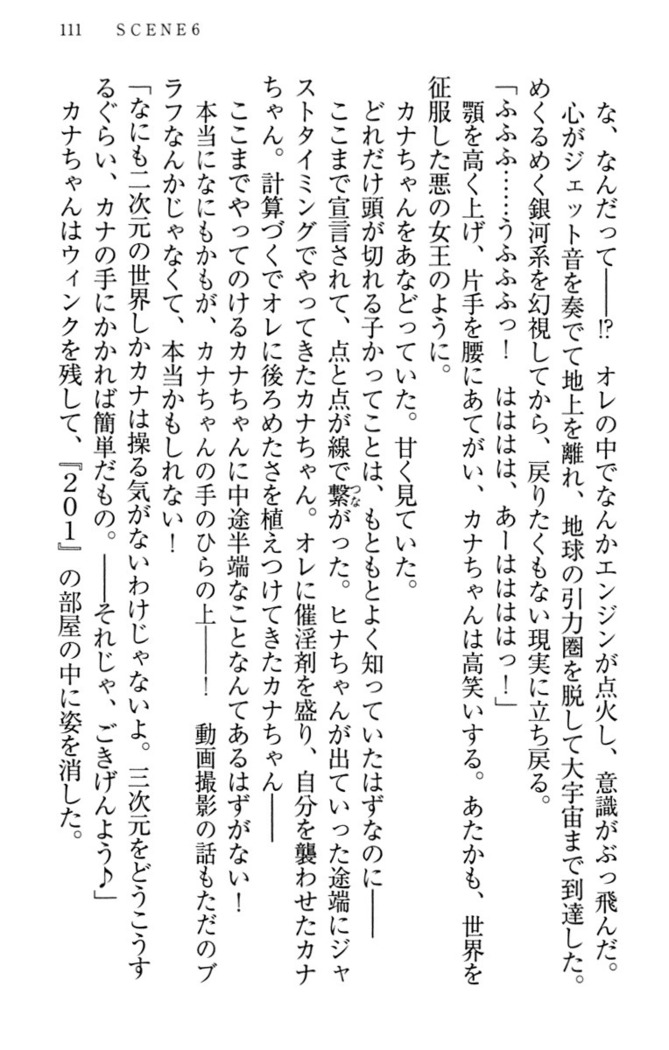 111 SCENE6
な、なんだって――!?　オレの中でなんかエンジンが点火し、意識がぶっ飛んだ。
心がジェット音を奏でて地上を離れ、地球の引力圏を脱して大宇宙まで到達した。
めくるめく銀河系を幻視してから、戻りたくもない現実に立ち戻る。
「ふふふ……うふふふっ！　はははは、あーはははははっ！」
顎を高く上げ、片手を腰にあてがい、カナちゃんは高笑いする。あたかも、世界を
征服した悪の女王のように。
カナちゃんをあなどっていた。甘く見ていた。
どれだけ頭が切れる子かってことは、もともとよく知っていたはずなのに――
ここまで宣言されて、点と点が線で繋つながった。ヒナちゃんが出ていった途端にジャ
ストタイミングでやってきたカナちゃん。オレに催淫剤を盛り、自分を襲わせたカナ
ちゃん。計算づくでオレに後ろめたさを植えつけてきたカナちゃん――
ここまでやってのけるカナちゃんに中途半端なことなんてあるはずがない！
本当になにもかもが、カナちゃんの手のひらの上――！　動画撮影の話もただのブ
ラフなんかじゃなくて、本当かもしれない！
「なにも二次元の世界しかカナは操る気がないわけじゃないよ。三次元をどうこうす
るぐらい、カナの手にかかれば簡単だもの。――それじゃ、ごきげんよう♪」
カナちゃんはウィンクを残して、『２０１』の部屋の中に姿を消した。